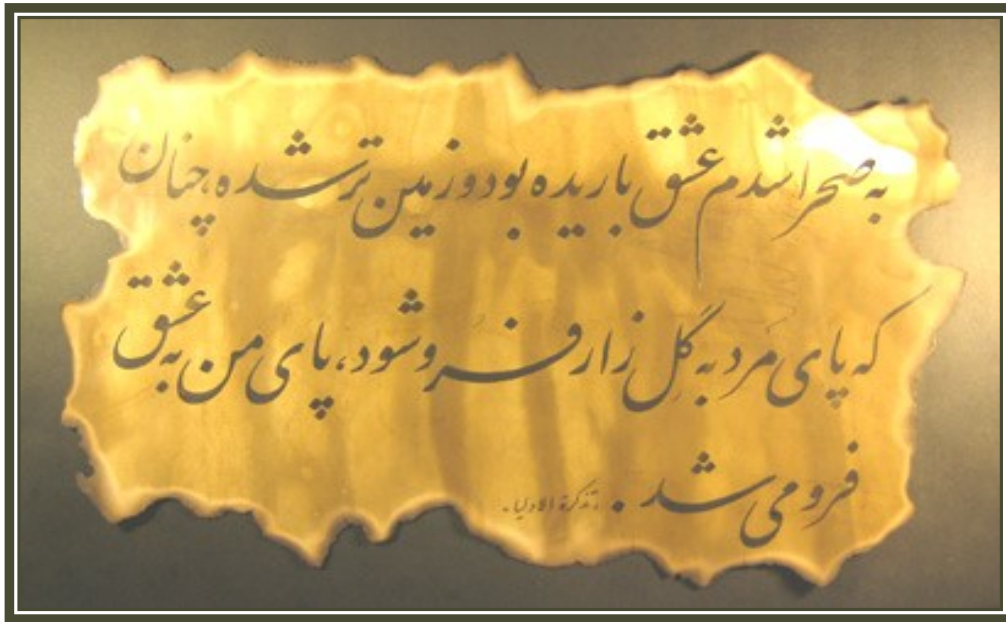 به صحرا شدم عشق باریده بود و زمین تر شده، چنان
که پای مرد به گلزار فرو شود، پای من به عشق
فرو می شد. تذکرة الاولیا.